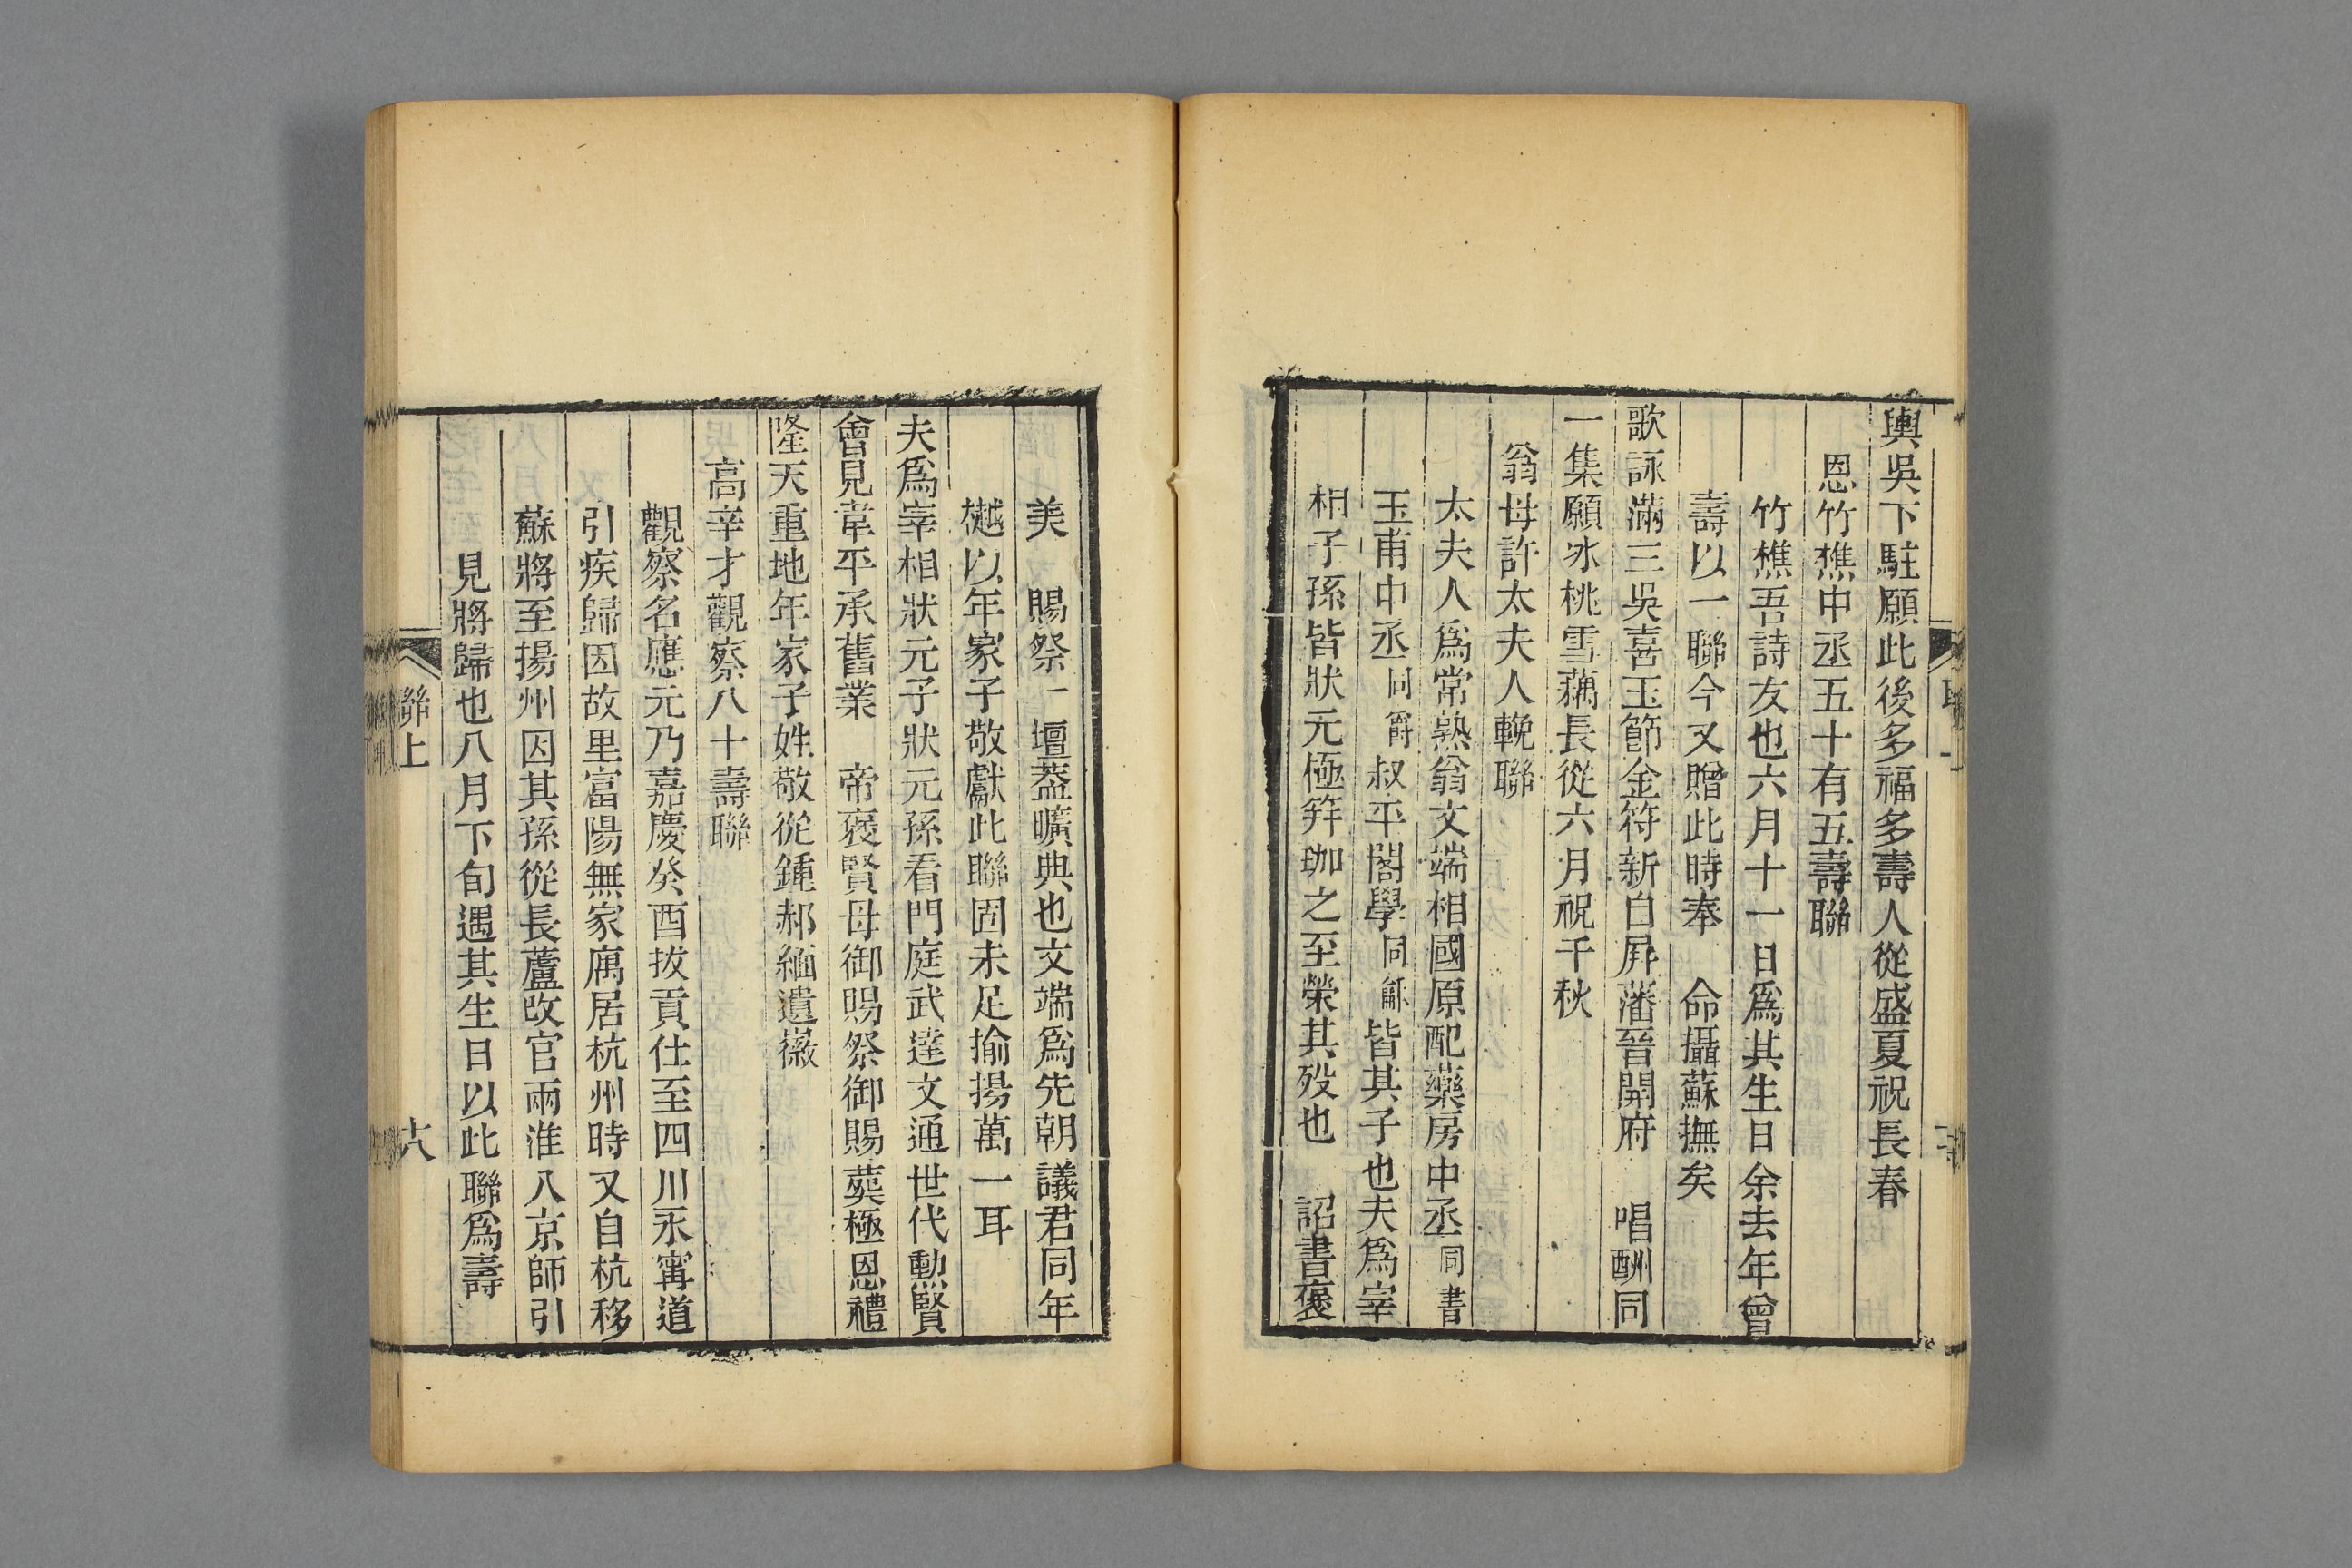 輿吳下駐願此後多福多壽人從盛夏祝長春
恩竹樵中丞五十有五壽聯
竹樵吾詩友也六月十一日爲其生日余去年曾
壽以一聯今又贈此時奉　命攝蘇撫矣
歌詠滿三吳喜玉節金符新自屛藩晉開府　唱酬同
一集願冰桃雪藕長從六月祝千秋
翁母許太夫人輓聯
太夫人爲常熟翁文端相國原配藥房中丞同書
玉甫中丞同爵叔平閣學同龢皆其子也夫爲宰
相子孫皆狀元極筓珈之至榮其歿也　詔書褒
美　賜祭一壇葢曠典也文端爲先朝議君同年
樾以年家子敬獻此聯固未足揄揚萬一耳
夫爲宰相狀元子狀元孫看門庭武達文通世代勳賢
會見韋平承舊業　帝褒賢母御賜祭御賜葬極恩禮
隆天重地年家子姓敬從鍾郝緬遺徽
高辛才觀察八十壽聯
觀察名應元乃嘉慶癸酉拔貢仕至四川永甯道
引疾歸因故里富陽無家寓居杭州時又自杭移
蘇將至揚州因其孫從長蘆改官兩淮入京師引
見將歸也八月下旬遇其生日以此聯爲壽
聯上
六